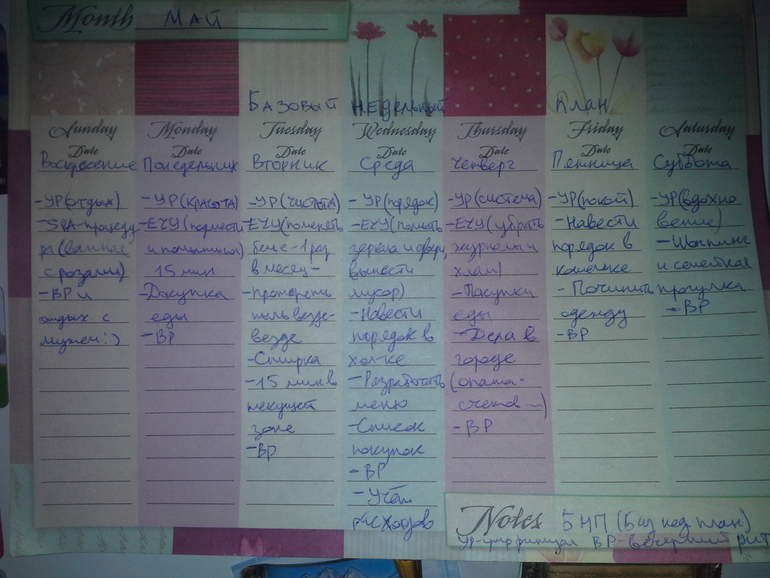 Month МАЙ
Базовый недельный план
Sunday Monday Tuesday Wednesday Thursday Friday Saturday
Date Date Date Date Date Date Date
Воскресение
-УР(отдых)
-SPA-процеду
ры (ванные
с розами)
-ВР и
отдых с
мужем:)
Понедельник
-УР(красота)
-ЕЧУ(
15 мин
-Докупка
еды
-ВР
Вторник
-УР(чистота)
-ЕЧУ(поменять
белье-1 раз
в месяц-
-Протереть
пыль везде-
везде
-Стирка
-15 мин в
текущей
зоне
-ВР
Среда
-УР(порядок)
-ЕЧУ(помыть
зеркала и двери,
вынести
мусор)
-Навести
порядок в
хол-ке
-Разработать
меню
-Список
покупок
-ВР
-Учёт
расходов
Четверг
-УР(система)
-ЕЧУ(убрать
журналы и
хлам)
-Покупки
еды
-Дела в
городе
(оплата
счетов---)
-ВР
Пятница
-УР(покой)
-Навести
порядок в
кошельке
-Починить
одежду
-ВР
Суббота
-УР(вдохно
вение)
-Шоппинг
и семейная
прогулка
-ВР
Notes БНП (Баз нед план)
ВР-вечерний рит